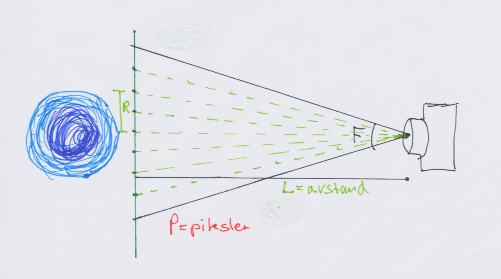 R
L=avstand
P=piksler